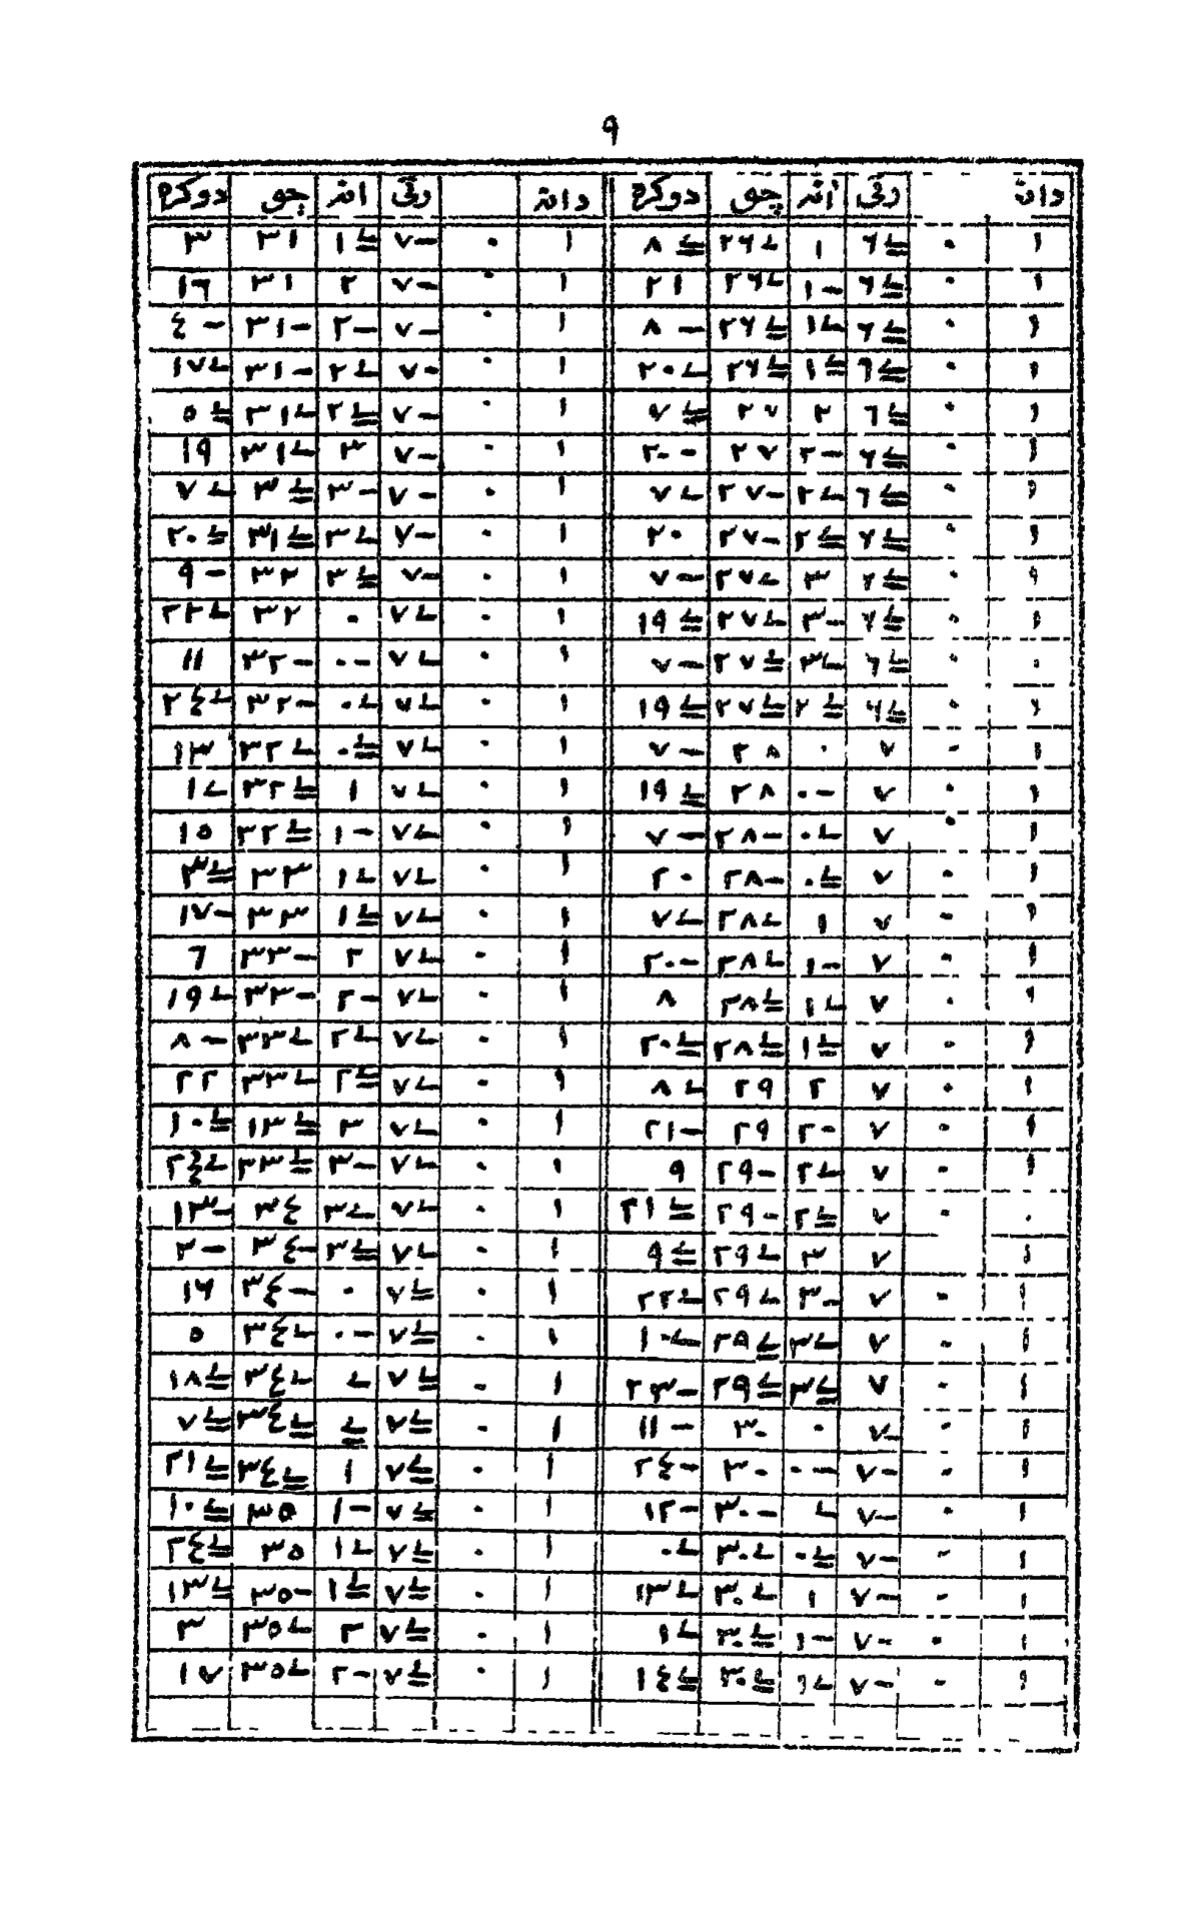 ٩
دانة رتي آنه چو دوكره دانة رتي انه چو دوكره
١ ٠ ٦∠= ١ ٢٦∠ ٨∠= ١ ٠ ٧- ١∠= ٣١ ٣
١ ٠ ٦∠= ١- ٢٦∠ ٢١ ١ ٠ ٧- ٢ ٣١ ١٦
١ ٠ ٦∠= ١∠ ٢٦∠= ٨- ١ ٠ ٧- ٢- ٣١- ٤-
١ ٠ ٦∠= ١∠= ٢٦∠= ٢٠∠ ١ ٠ ٧- ٢∠ ٣١- ١٧∠
١ ٠ ٦∠= ٢ ٢٧ ٧∠= ١ ٠ ٧- ٢∠= ٣١∠ ٥∠=
١ ٠ ٦∠= ٢- ٢٧ ٢٠- ١ ٠ ٧- ٣ ٣١∠ ١٩
١ ٠ ٦∠= ٢∠ ٢٧- ٧∠ ١ ٠ ٧- ٣- ٣∠= ٧∠
١ ٠ ٦∠= ٢∠= ٢٧- ٢٠ ١ ٠ ٧- ٣∠ ٣١∠= ٢٠∠=
١ ٠ ٦∠= ٣ ٢٧∠ ٧- ١ ٠ ٧- ٣∠= ٣٢ ٩-
١ ٠ ٦∠= ٣- ٢٧∠ ١٩∠= ١ ٠ ٧∠ ٠ ٣٢ ٢٢∠
٠ ٠ ٦∠= ٣∠ ٢٧∠= ٧- ١ ٠ ٧∠ ٠- ٣٢- ١١
١ ٠ ٦∠= ٢∠= ٢٧∠= ١٩∠= ١ ٠ ٧∠ ٠∠ ٣٢- ٢٤∠
١ ٠ ٧ ٠ ٢٨ ٧- ١ ٠ ٧∠ ٠∠= ٣٢∠ ١٣
١ ٠ ٧ ٠- ٢٨ ١٩∠= ١ ٠ ٧∠ ١ ٣٢∠= ١∠
١ ٠ ٧ ٠∠ ٢٨- ٧- ١ ٠ ٧∠ ١- ٣٢∠= ١٥
١ ٠ ٧ ٠∠= ٢٨- ٢٠ ١ ٠ ٧∠ ١∠ ٣٣ ٣∠=
١ ٠ ٧ ١ ٢٨∠ ٧∠ ١ ٠ ٧∠ ١∠= ٣٣ ١٧-
١ ٠ ٧ ١- ٢٨∠ ٢٠- ١ ٠ ٧∠ ٢ ٣٣- ٦
١ ٠ ٧ ١∠ ٢٨∠= ٨ ١ ٠ ٧∠ ٢- ٣٣- ١٩∠
١ ٠ ٧ ١∠= ٢٨∠= ٢٠∠= ١ ٠ ٧∠ ٢∠ ٣٣∠ ٨-
١ ٠ ٧ ٢ ٢٩ ٨∠ ١ ٠ ٧∠ ٢∠= ٣٣∠ ٢٢
١ ٠ ٧ ٢- ٢٩ ٢١- ١ ٠ ٧∠ ٣ ١٣∠= ١٠∠=
١ ٠ ٧ ٢∠ ٢٩- ٩ ١ ٠ ٧∠ ٣- ٣٣∠= ٢٤∠
٠ ٠ ٧ ٢∠= ٢٩- ٢١∠= ١ ٠ ٧∠ ٣∠ ٣٤ ١٣-
١ ٧ ٣ ٢٩∠ ٩∠= ١ ٠ ٧∠ ٣∠= ٣٤- ٢-
١ ٠ ٧ ٣- ٢٩∠ ٢٢∠ ١ ٠ ٧∠= ٠ ٣٤- ١٦
١ ٠ ٧ ٣∠ ٢٩∠= ١٠∠ ١ ٠ ٧∠= ٠- ٣٤∠ ٥
١ ٠ ٧ ٣∠= ٢٩∠= ٢٣- ١ ٠ ٧∠= ∠ ٣٤∠ ١٨∠=
١ ٠ ٧- ٠ ٣٠ ١١- ١ ٠ ٧∠= ∠= ٣٤∠= ٧∠=
١ ٠ ٧- ٠- ٣٠ ٢٤- ١ ٠ ٧∠= ١ ٣٤∠= ٢١∠=
١ ٠ ٧- ∠ ٣٠- ١٢- ١ ٠ ٧∠= ١- ٣٥ ١٠∠=
١ ٠ ٧- ٠∠= ٣٠∠ ٠∠ ١ ٠ ٧∠= ١∠ ٣٥ ٢٤∠=
١ ٠ ٧- ١ ٣٠∠ ١٣∠ ١ ٠ ٧∠= ١∠= ٣٥- ١٣∠=
١ ٠ ٧- ١- ٣٠∠= ١∠ ١ ٠ ٧∠= ٢ ٣٥∠ ٣
١ ٠ ٧- ١∠ ٣٠∠= ١٤∠= ١ ٠ ٧∠= ٢- ٣٥∠ ١٧